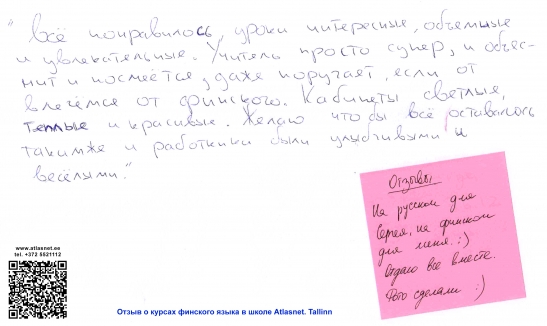 "Всё понравилось, уроки интересные, объёмные
и увлекательные. Учитель просто супер, и объяс-
нит и посмеётся, даже поругает, если от
влечёмся от финского. Кабинеты светлые,
тёплые и красивые. Желаю что бы всё оставалось
такимже и работники были улыбчивыми и
весёлыми."
Отзывы
На русском для
Сергея, на финском
для меня. :)
Отдаю все вместе.
Фото сделали :)
www.atlasnet.ee
tel. +372 5521112
Отзыв о курсах финского языка в школе Atlasnet. Tallinn